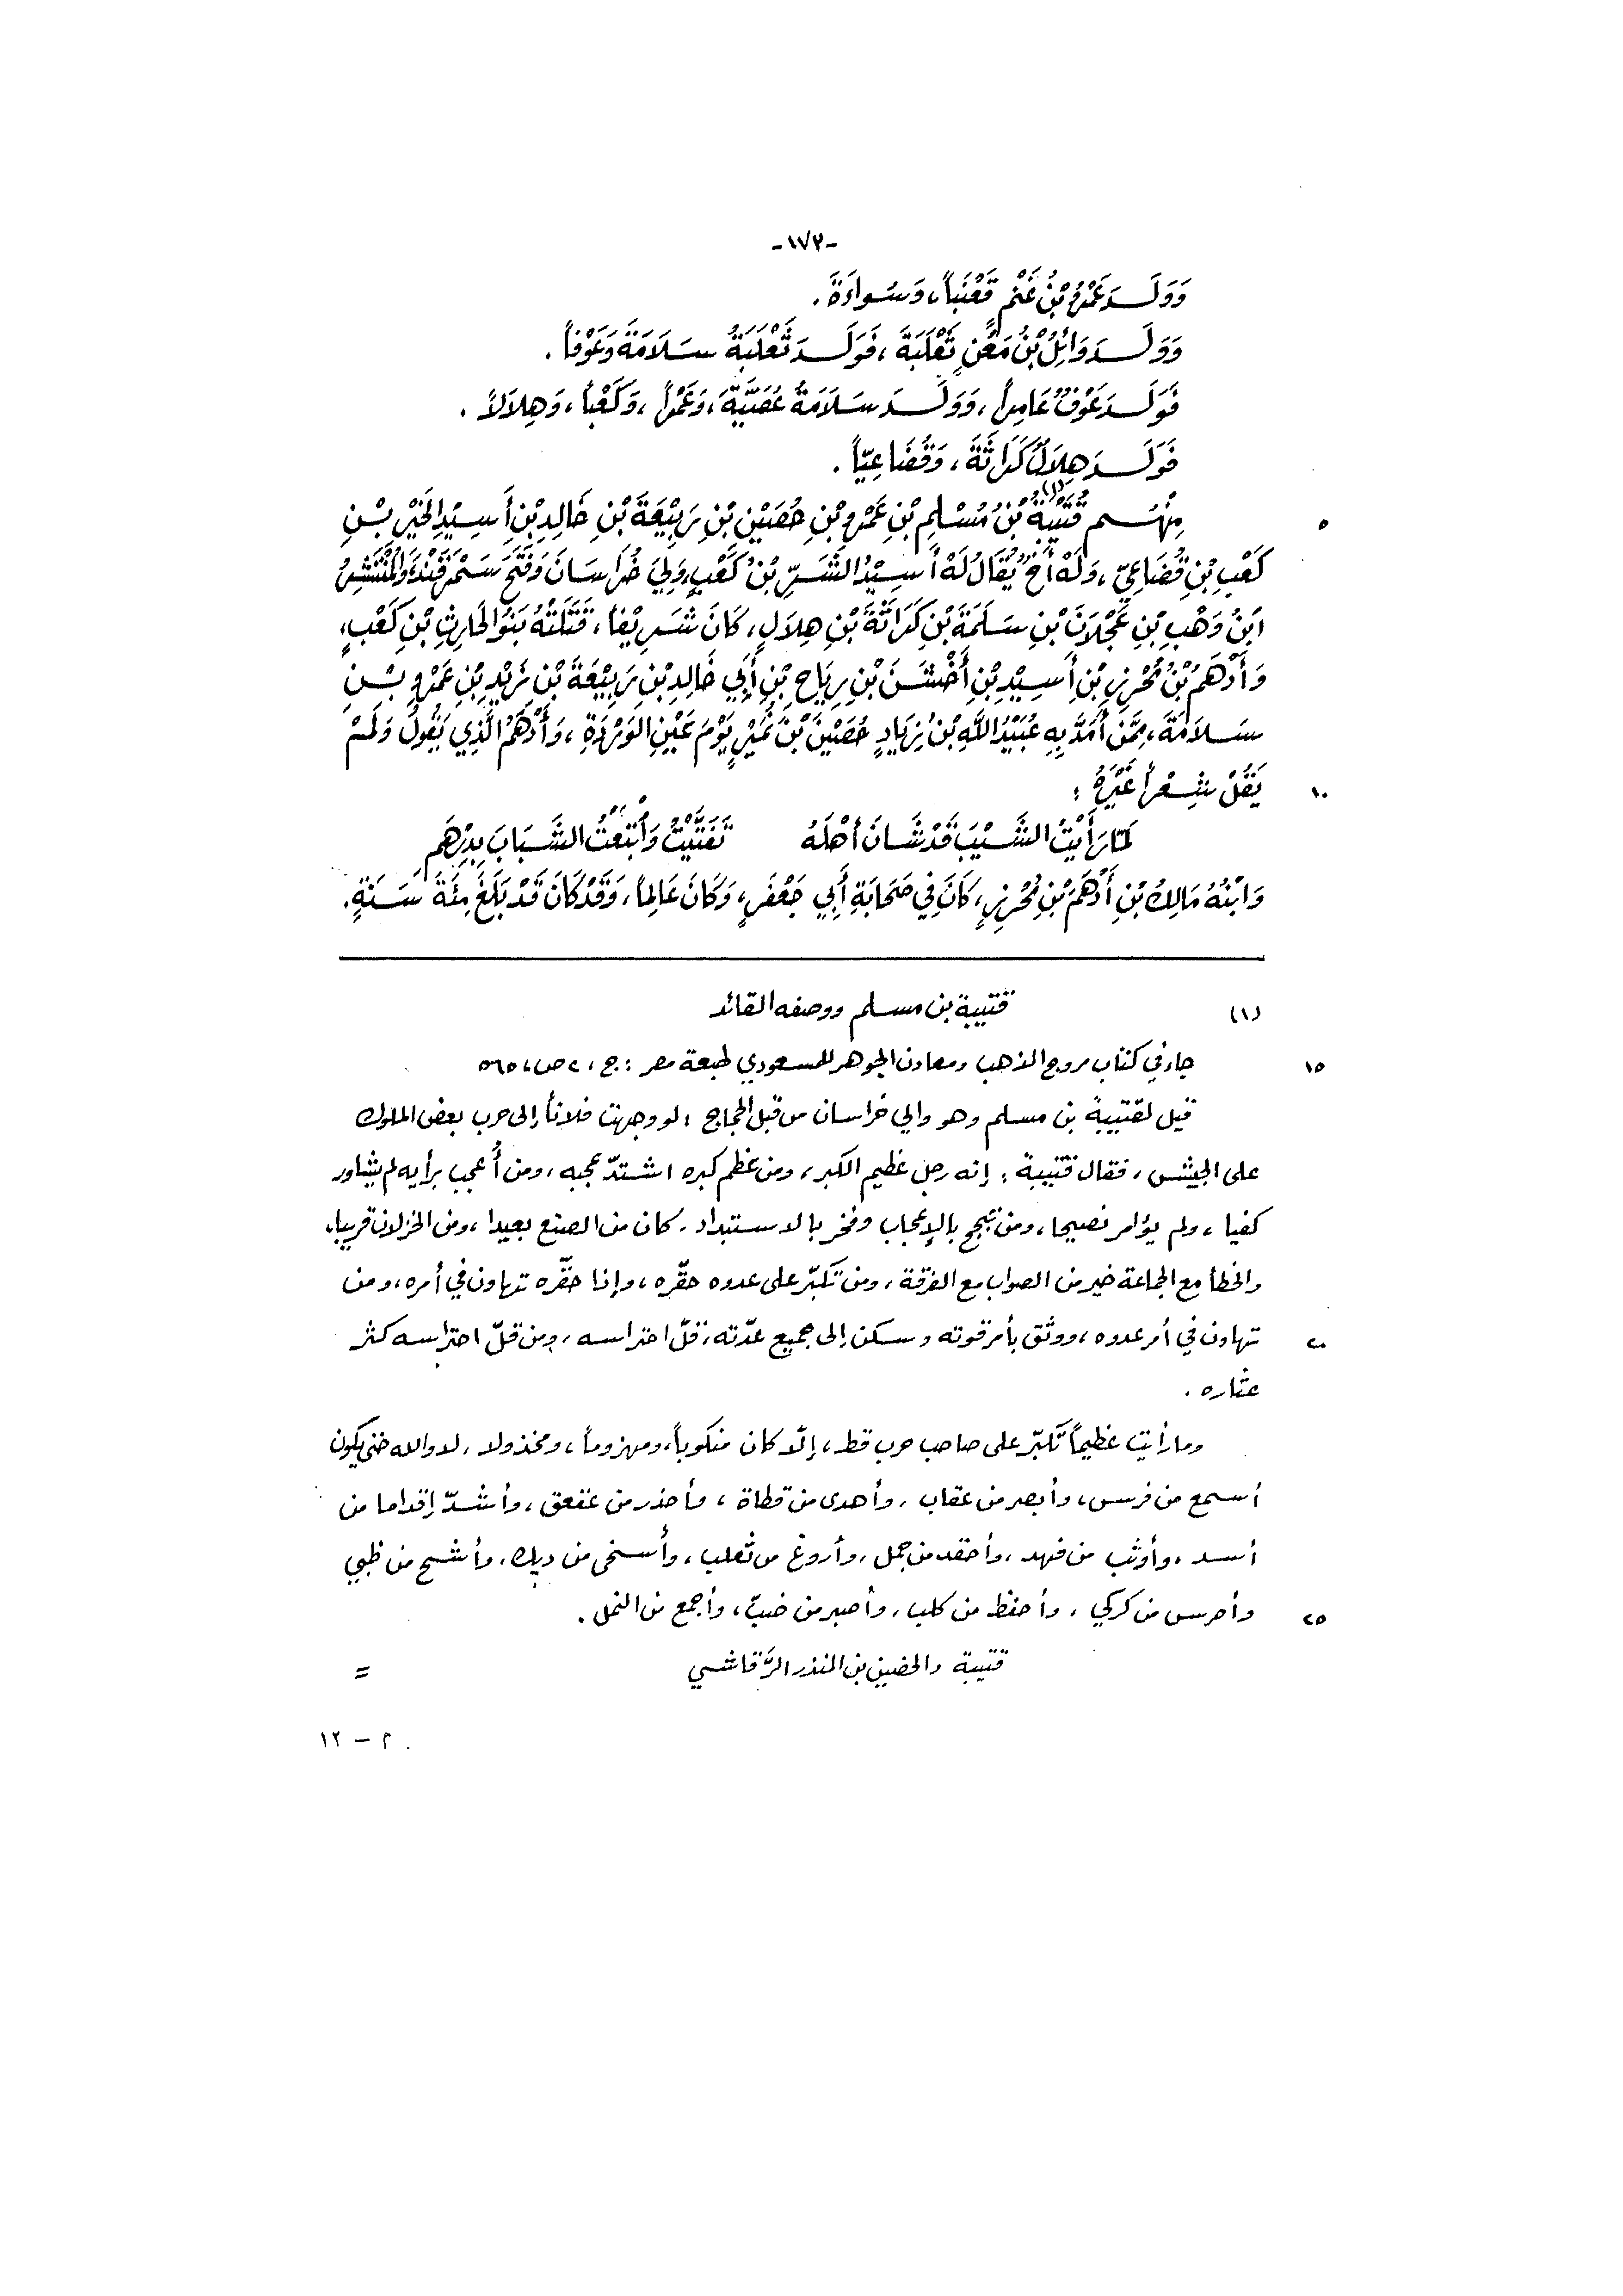 -١٧٣-
وَوَلَدَ عَمْرُو بْنُ غَنْمٍ قَعْنَباً، وَسُواءَةَ.
وَوَلَدَ وَائِلُ بْنُ مَعْنٍ ثَعْلَبَةَ، فَوَلَدَ ثَعْلَبَةُ سَلَامَةَ وَعَوْفاً.
فَوَلَدَ عَوْفٌ عَامِراً، وَوَلَدَ سَلَامَةُ عُصَيَّةَ، وَعَمْراً، وَكَعْباً، وَهِلَالاً.
فَوَلَدَ هِلَالٌ كَرَاثَةَ، وَقُضَاعِيّاً.
٥ مِنْهُم قُتَيْبَةُ(١) بْنُ مُسْلِمِ بْنِ عَمْرِو بْنِ حُصَيْنِ بْنِ رَبِيْعَةَ بْنِ خَالِدِ بْنِ أَسِيْدِ الخَيْرِ بْنِ
كَعْبِ بْنِ قُضَاعِيٍّ، وَلَهُ أَخٌ يُقَالُ لَهُ أَسِيْدُ الشَّرِّ بْنُ كَعْبٍ، وَلِيَ خُرَاسَانَ وَفَتَحَ سَمَرْقَنْدَ، وَالمُنْتَشِرُ
ابْنُ وَهْبِ بْنِ عَجْلَانَ بْنِ سَلَمَةَ بْنِ كَرَاثَةَ بْنِ هِلَالٍ، كَانَ شَرِيْفاً، قَتَلَتْهُ بَنُو الحَارِثِ بْنِ كَعْبٍ،
وَأَدْهَمُ بْنُ مُحْرِزِ بْنِ أَسِيْدِ بْنِ أَخْشَنَ بْنِ رِيَاحِ بْنِ أَبِي خَالِدِ بْنِ رَبِيْعَةَ بْنِ زَيْدِ بْنِ عَمْرِو بْنِ
سَلَامَةَ، مِمَّن أَمَدَّ بِهِ عُبَيْدُ اللَّهِ بْنُ زِيَادٍ حُصَيْنَ بْنَ نُمَيْرٍ يَوْمَ عَيْنِ الوَرْدَةِ، وَأَدْهَمُ الَّذِي يَقُولُ وَلَمْ
١٠ يَقُلْ شِعْراً غَيْرَهُ:
لَمَّا رَأَيْتُ الشَّيْبَ قَدْ شَانَ أَهْلَهُ تَفَتَّيْتُ وَابْتَعْتُ الشَّبَابَ بِدِرْهَمِ
وَابْنُهُ مَالِكُ بْنِ أَدْهَمَ بْنِ مُحْرِزٍ، كَانَ فِي صَحَابَةِ أَبِي جَعْفَرٍ، وَكَانَ عَالِماً، وَقَدْ كَانَ قَدْ بَلَغَ مِئَةَ سَنَةٍ.
(١) قتيبة بن مسلم ووصفه القائد
١٥ جاء في كتاب مروج الذهب ومعادن الجوهر للمسعودي طبعة مصر: ج، ٢ ص، ٥٦٥
قيل لقتيبة بن مسلم وهو والي خراسان من قبل الحجاج: لو وجهت فلاناً إلى حرب بعض الملوك
على الجيش، فقال قتيبة: إنه رجل عظيم الكبر، ومن عظم كبره اشتدّ عجبه، ومن أُعجب برأيه لم يشاور
كفيا، ولم يؤامر نصيحا، ومن تبجح بالإعجاب وفخر بالاستبداد. كان من الصنع بعيدا، ومن الخزلان قريبا،
والخطأ مع الجماعة خير من الصواب مع الفرقة، ومن تكبّر على عدوه حقّره، وإذا حقّره تهاون في أمره، ومن
٢٠ تهاون في أمر عدوه، ووثق بأمر قوته وسكن إلى جميع عدّته، قلّ احتراسه، ومن قلّ احتراسه كثر
عثاره.
وما رأيت عظيماً تكبّر على صاحب حرب قط، إلّا كان منكوباً، ومهزوماً، ومخذولا، لا والله حتى يكون
أسمع من فرس، وأبصر من عقاب، وأهدى من قطاة، وأحذر من عقعق، وأشدّ إقداما من
أسد، وأوثب من فهد، وأحقد من جمل، وأروغ من ثعلب، وأسخى من ديك، وأشح من ظبي
٢٥ وأحرس من كركي، وأحفظ من كلب، وأصبر من ضبّ، وأجمع من النمل.
قتيبة والحضين بن المنذر الرَّقاشي =
٢ – ١٢